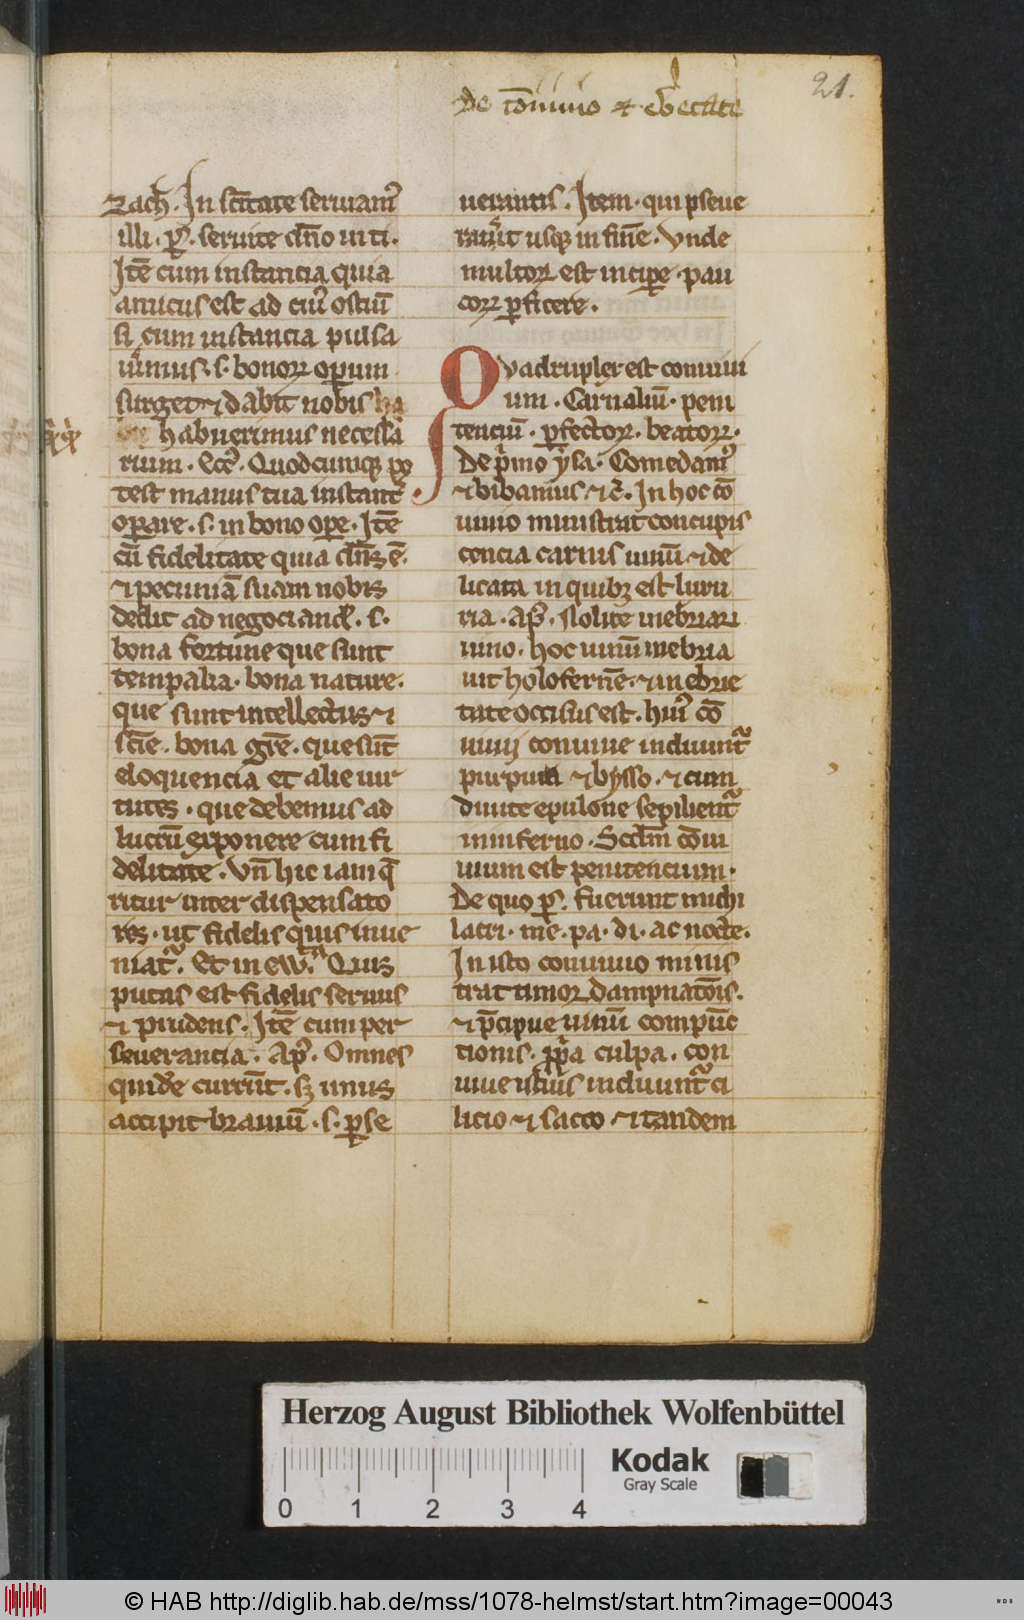 De cōuiuio ⁊ eb'etate
21.
Zach̄. In sc̄itate seruiam᷒
illi. p̄s. seruite dn̄o in ti.
Itē cum instancia quia
amicus est ad eiu᷒ ostiū
si cum instancia pulsa
u'imus. s. bonoꝝ operum
surget ⁊ dabit nobis
habuerimus necessa
rium. Ecc̄. Quodcumqꝫ po
test manus tua instant᷒
oꝑare. s. in bono oꝑe. Itē
cū fidelitate quia dn̄s ē.
⁊ pecuniā suam nobis
dedit ad negociand'. s.
bona fortune que sunt
temporalia. bona nature.
que sunt intellectus ⁊
sciē. bona grē. que sūt
eloquencia et alie uir
tutes. que debemus ad
lucrū exponere cum fi
delitate. Vn̄ hic iam q̄
ritur inter dispensato
res. ut fidelis quis inue
niat᷑. Et in ew. Quis
putas est fidelis seruus
⁊ prudens. Itē cum per
seuerancia. Ap'. Omnes
quidē currūt. sꝫ unus
accipit brauiū. s. ꝑse
uerantis. Item. qui ꝑseue
rau'it usqꝫ in finē. Vnde
multoꝝ est incipe. pau
coꝝ ꝑficere.
Quadruplex est conuiui
um. Carnaliū. peni
tenciū. ꝑfectoꝝ. beatoꝝ.
De p'mo ysa. Comedam᷒
⁊ bibamus ⁊c̄. In hoc cō
uiuio ministrat concupis
cencia carnis uinū ⁊ de
licata in quibꝫ est luxu
ria. Ap'. Nolite inebriari
uino. hoc uinū inebria
uit holofernē. ⁊ in ebrie
tate occisus est. hui᷒ cō
uiuij conuiue induunt᷑
purpura ⁊ bysso. ⁊ cum
diuite epulone sepelient᷑
in inferno. Scdm cōui
uium est penitencium.
De quo p̄s. fuerunt michi
lacri. me. pa. di. ac nocte.
In isto conuiuio minis
trat timor dampnatōis.
⁊ p̄cipue uinū compūc
tionis. ꝓp'a culpa. con
uiue istius induunt᷑ ci
licio ⁊ sacco. ⁊ tandem
Herzog August Bibliothek Wolfenbüttel
Kodak
Gray Scale
0 1 2 3 4
© HAB http://diglib.hab.de/mss/1078-helmst/start.htm?image=00043